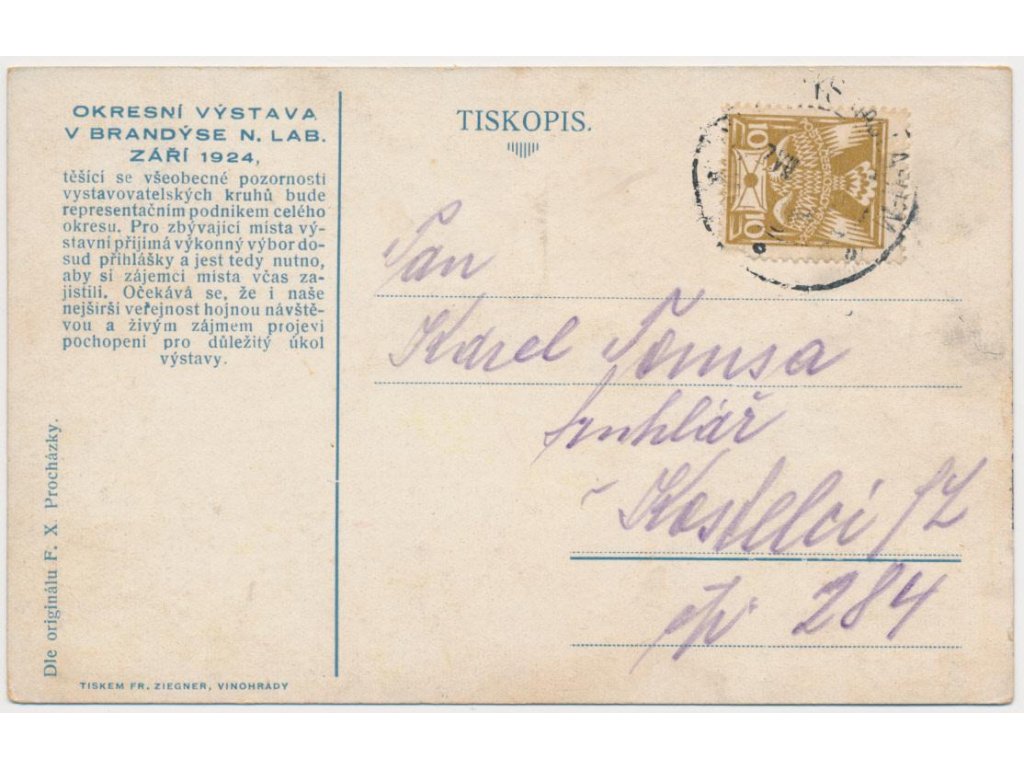 OKRESNÍ VÝSTAVA
V BRANDÝSE N. LAB.
ZÁŘÍ 1924,
těšící se všeobecné pozornosti
vystavovatelských kruhů bude
representačním podnikem celého
okresu. Pro zbývající místa vý-
stavní přijímá výkonný výbor do-
sud přihlášky a jest tedy nutno,
aby si zájemci místa včas za-
jistili. Očekává se, že i naše
nejširší veřejnost hojnou návště-
vou a živým zájmem projeví
pochopení pro důležitý úkol
výstavy.
Dle originálu F. X Procházky.
TISKEM FR. ZIEGNER, VINOHRADY
TISKOPIS.
10
10
Pan
Karel Tomsa
truhlář
Kostelci /L
čp. 284